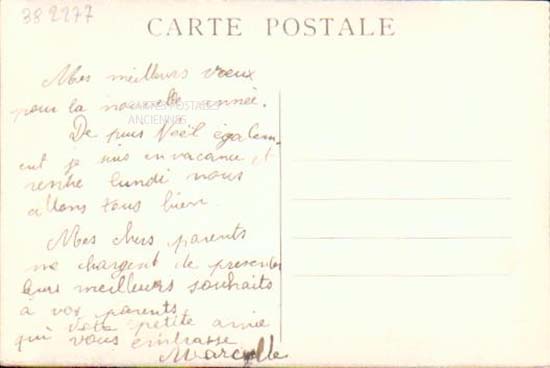 38 2277
CARTE POSTALE
Mes meilleurs vœux
pour la nouvelle année.
CARTES POSTALES
ANCIENNES
De puis Noël égalem-
ent je suis en vacance et
rentre lundi nous
allons tous bien.
Mes chers parents
me chargent de presenter
leurs meilleurs souhaits
à vos parents
Votre petite amie
qui vous embrasse
Marcelle